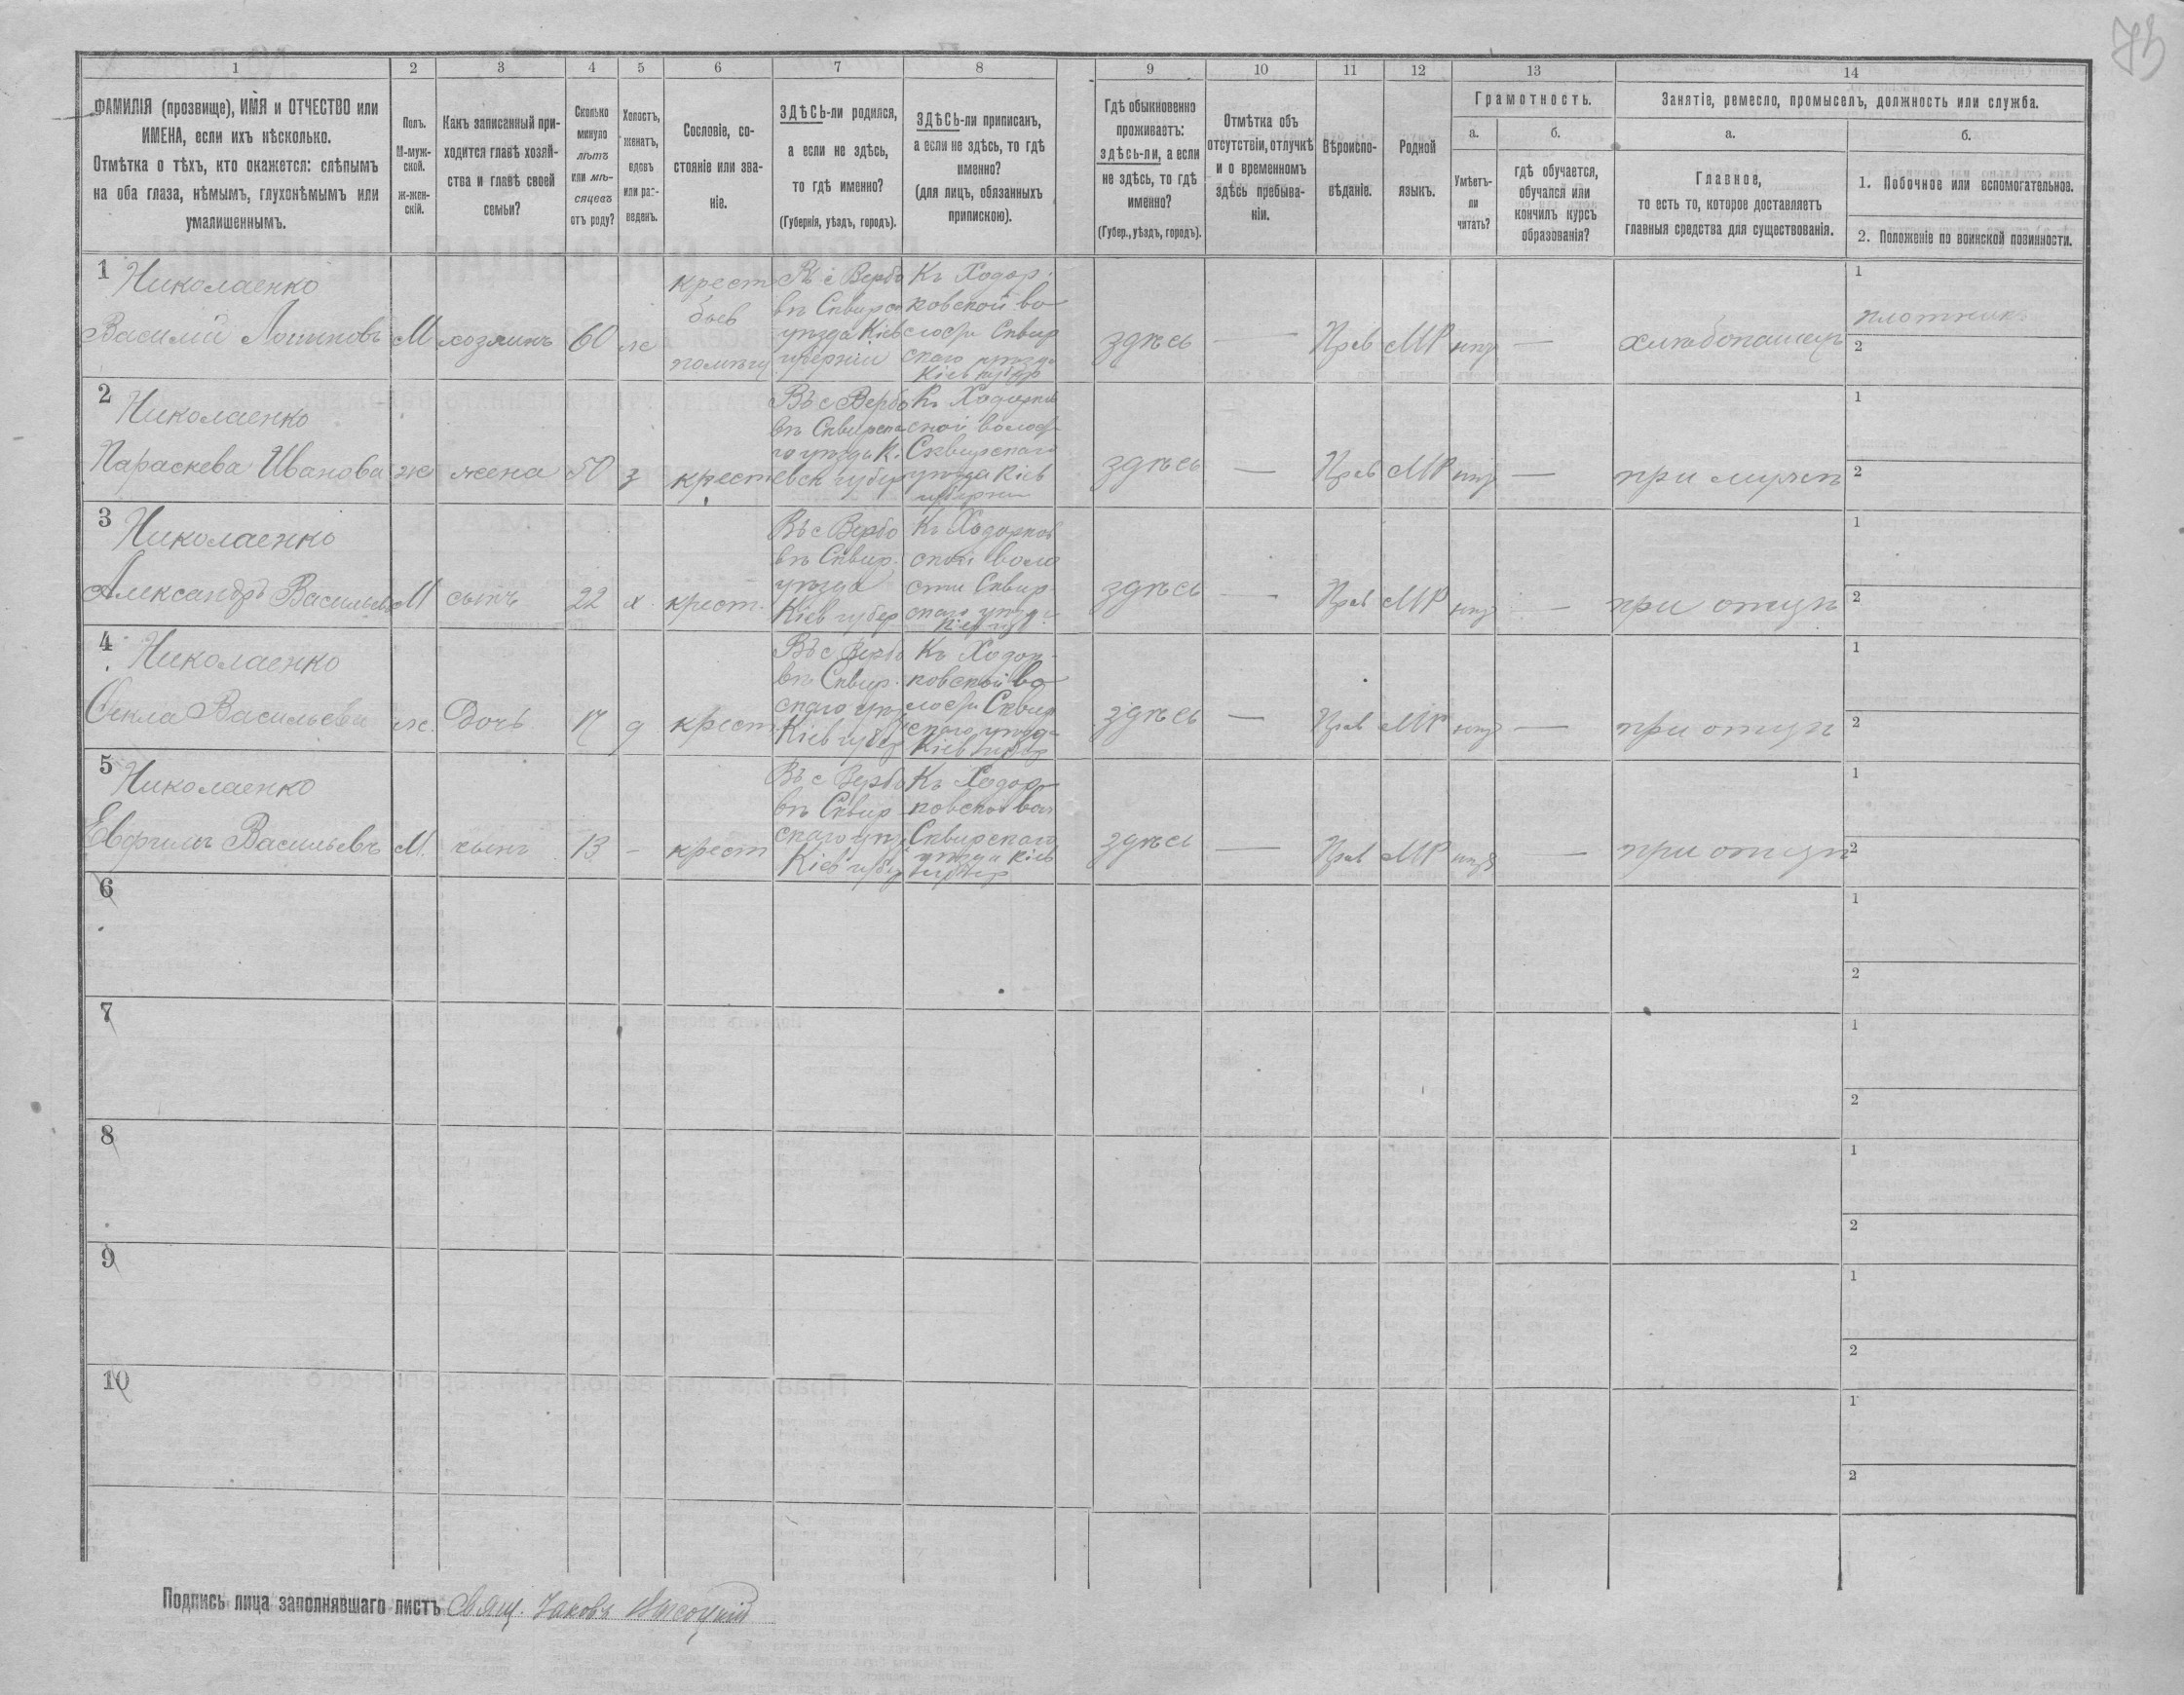 1 2 3 4 5 6 7 8 9 10 11 12 13 14
ФАМИЛІЯ (прозвище), ИМЯ и ОТЧЕСТВО или
ИМЕНА, если ихъ нѣсколько.
Отмѣтка о тѣхъ, кто окажется: слѣпымъ
на оба глаза, нѣмымъ, глухонѣмымъ или
умалишеннымъ.
Полъ.
М-муж-
ской.
ж-жен-
скій.
Какъ записанный при-
ходится главѣ хозяй-
ства и главѣ своей
семьи?
Сколько
минуло
лѣтъ
или мѣ-
сяцевъ
отъ роду?
Холостъ,
женатъ,
вдовъ
или раз-
веденъ.
Сословіе, со-
стояніе или зва-
ніе.
ЗДѢСЬ-ли родился,
а если не здѣсь,
то гдѣ именно?
(Губернія, уѣздъ, городъ).
ЗДѢСЬ-ли приписанъ,
а если не здѣсь, то гдѣ
именно?
(для лицъ, обязанныхъ
припискою).
Гдѣ обыкновенно
проживаетъ:
здѣсь-ли, а если
не здѣсь, то гдѣ
именно?
(Губер., уѣздъ, городъ).
Отмѣтка объ
отсутствіи, отлучкѣ
и о временномъ
здѣсь пребыва-
ніи.
Вѣроиспо-
вѣданіе.
Родной
языкъ.
Грамотность.
а.
Умѣетъ-
ли
читать?
б.
гдѣ обучается,
обучался или
кончилъ курсъ
образованія?
Занятіе, ремесло, промыселъ, должность или служба.
а.
Главное,
то есть то, которое доставляетъ
главныя средства для существованія.
б.
1. Побочное или вспомогательное.
2. Положеніе по воинской повинности.
1
Николаенко
Василій М хозяинъ 60 ж
крест
бывъ
помѣщ
Въ с Вербо
вѣ Сквирск
уѣзда Кіев
губерніи
Къ Ходор
ковской во
лости Сквир
скаго уѣзда
Кіев губер
здѣсь — Прав МР — хлѣбопашец
1
плотникъ
2
2
Николаенко
Параскева Иванова ж жена 50 з крест
Въ с Вербо
вѣ Сквирска
го уѣзда К.
евск губер
Къ Ходорков
ской волос
Сквирскаго
уѣзда Кіев
губернии
здѣсь — Прав МР — при мужѣ
1
2
3
Николаенко
Александръ Васильев М сынъ 22 х крест.
Въ с Вербо
вѣ Сквир.
уѣзда
Кіев губер
Къ Ходорков
ской воло
сти Сквир
скаго уѣзда
здѣсь — Прав МР — при отцѣ
1
2
4
Николаенко
Фекла Васильева ж. Дочь 17 д крест
Въ с Вербо
вѣ Сквир
скаго уѣз
Кіев губер
Къ Ходор
ковской во
лости Сквир
скаго уѣзда
Кіев губер
здѣсь — Прав МР — при отцѣ
1
2
5
Николаенко
Васильевъ М. сынъ 13 — крест
Въ с Вербо
вѣ Сквир
скаго уѣз
Кіев губер
Къ Ходор
ковской вол
Сквирскаго
уѣзда Кіев
губер
здѣсь — Прав МР — при отцѣ
1
2
6
1
2
7
1
2
8
1
2
9
1
2
10
1
2
Подпись лица заполнявшаго листъ Свящ. Іаковъ Высоцкій